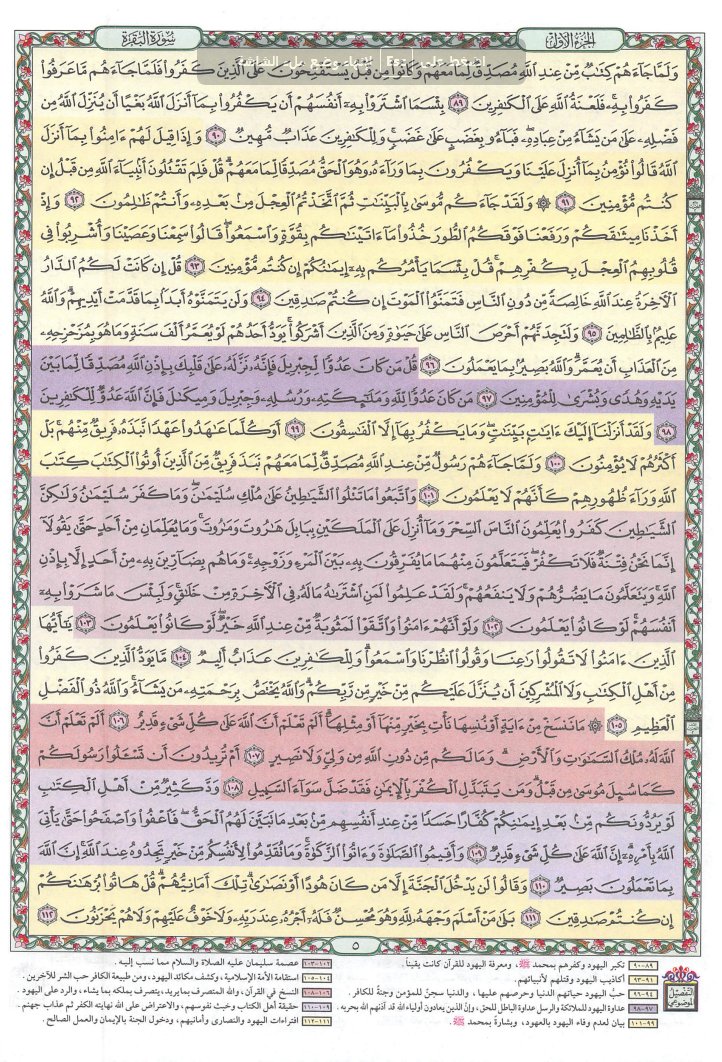 الجزء الأول
سورة البقرة
وَلَمَّا جَاءَهُمْ كِتَابٌ مِّنْ عِندِ اللَّهِ مُصَدِّقٌ لِّمَا مَعَهُمْ وَكَانُوا مِن قَبْلُ يَسْتَفْتِحُونَ عَلَى الَّذِينَ كَفَرُوا فَلَمَّا جَاءَهُم مَّا عَرَفُوا
كَفَرُوا بِهِ فَلَعْنَةُ اللَّهِ عَلَى الْكَافِرِينَ ٨٩ بِئْسَمَا اشْتَرَوْا بِهِ أَنفُسَهُمْ أَن يَكْفُرُوا بِمَا أَنزَلَ اللَّهُ بَغْيًا أَن يُنَزِّلَ اللَّهُ مِن
فَضْلِهِ عَلَى مَن يَشَاءُ مِنْ عِبَادِهِ فَبَاءُو بِغَضَبٍ عَلَى غَضَبٍ وَلِلْكَافِرِينَ عَذَابٌ مُّهِينٌ ٩٠ وَإِذَا قِيلَ لَهُمْ ءَامِنُوا بِمَا أَنزَلَ
اللَّهُ قَالُوا نُؤْمِنُ بِمَا أُنزِلَ عَلَيْنَا وَيَكْفُرُونَ بِمَا وَرَاءَهُ وَهُوَ الْحَقُّ مُصَدِّقًا لِّمَا مَعَهُمْ قُلْ فَلِمَ تَقْتُلُونَ أَنبِيَاءَ اللَّهِ مِن قَبْلُ إِن
كُنتُم مُّؤْمِنِينَ ٩١ ۞ وَلَقَدْ جَاءَكُم مُّوسَى بِالْبَيِّنَاتِ ثُمَّ اتَّخَذْتُمُ الْعِجْلَ مِن بَعْدِهِ وَأَنتُمْ ظَالِمُونَ ٩٢ وَإِذْ
أَخَذْنَا مِيثَاقَكُمْ وَرَفَعْنَا فَوْقَكُمُ الطُّورَ خُذُوا مَا ءَاتَيْنَاكُم بِقُوَّةٍ وَاسْمَعُوا قَالُوا سَمِعْنَا وَعَصَيْنَا وَأُشْرِبُوا فِي
قُلُوبِهِمُ الْعِجْلَ بِكُفْرِهِمْ قُلْ بِئْسَمَا يَأْمُرُكُم بِهِ إِيمَانُكُمْ إِن كُنتُم مُّؤْمِنِينَ ٩٣ قُلْ إِن كَانَتْ لَكُمُ الدَّارُ
الْآخِرَةُ عِندَ اللَّهِ خَالِصَةً مِّن دُونِ النَّاسِ فَتَمَنَّوُا الْمَوْتَ إِن كُنتُمْ صَادِقِينَ ٩٤ وَلَن يَتَمَنَّوْهُ أَبَدًا بِمَا قَدَّمَتْ أَيْدِيهِمْ وَاللَّهُ
عَلِيمٌ بِالظَّالِمِينَ ٩٥ وَلَتَجِدَنَّهُمْ أَحْرَصَ النَّاسِ عَلَى حَيَوٰةٍ وَمِنَ الَّذِينَ أَشْرَكُوا يَوَدُّ أَحَدُهُمْ لَوْ يُعَمَّرُ أَلْفَ سَنَةٍ وَمَا هُوَ بِمُزَحْزِحِهِ
مِنَ الْعَذَابِ أَن يُعَمَّرَ وَاللَّهُ بَصِيرٌ بِمَا يَعْمَلُونَ ٩٦ قُلْ مَن كَانَ عَدُوًّا لِّجِبْرِيلَ فَإِنَّهُ نَزَّلَهُ عَلَى قَلْبِكَ بِإِذْنِ اللَّهِ مُصَدِّقًا لِّمَا بَيْنَ
يَدَيْهِ وَهُدًى وَبُشْرَى لِلْمُؤْمِنِينَ ٩٧ مَن كَانَ عَدُوًّا لِّلَّهِ وَمَلَائِكَتِهِ وَرُسُلِهِ وَجِبْرِيلَ وَمِيكَالَ فَإِنَّ اللَّهَ عَدُوٌّ لِّلْكَافِرِينَ
٩٨ وَلَقَدْ أَنزَلْنَا إِلَيْكَ ءَايَاتٍ بَيِّنَاتٍ وَمَا يَكْفُرُ بِهَا إِلَّا الْفَاسِقُونَ ٩٩ أَوَكُلَّمَا عَاهَدُوا عَهْدًا نَّبَذَهُ فَرِيقٌ مِّنْهُم بَلْ
أَكْثَرُهُمْ لَا يُؤْمِنُونَ ١٠٠ وَلَمَّا جَاءَهُمْ رَسُولٌ مِّنْ عِندِ اللَّهِ مُصَدِّقٌ لِّمَا مَعَهُمْ نَبَذَ فَرِيقٌ مِّنَ الَّذِينَ أُوتُوا الْكِتَابَ كِتَابَ
اللَّهِ وَرَاءَ ظُهُورِهِمْ كَأَنَّهُمْ لَا يَعْلَمُونَ ١٠١ وَاتَّبَعُوا مَا تَتْلُوا الشَّيَاطِينُ عَلَى مُلْكِ سُلَيْمَانَ وَمَا كَفَرَ سُلَيْمَانُ وَلَٰكِنَّ
الشَّيَاطِينَ كَفَرُوا يُعَلِّمُونَ النَّاسَ السِّحْرَ وَمَا أُنزِلَ عَلَى الْمَلَكَيْنِ بِبَابِلَ هَارُوتَ وَمَارُوتَ وَمَا يُعَلِّمَانِ مِنْ أَحَدٍ حَتَّى يَقُولَا
إِنَّمَا نَحْنُ فِتْنَةٌ فَلَا تَكْفُرْ فَيَتَعَلَّمُونَ مِنْهُمَا مَا يُفَرِّقُونَ بِهِ بَيْنَ الْمَرْءِ وَزَوْجِهِ وَمَا هُم بِضَارِّينَ بِهِ مِنْ أَحَدٍ إِلَّا بِإِذْنِ
اللَّهِ وَيَتَعَلَّمُونَ مَا يَضُرُّهُمْ وَلَا يَنفَعُهُمْ وَلَقَدْ عَلِمُوا لَمَنِ اشْتَرَاهُ مَا لَهُ فِي الْآخِرَةِ مِنْ خَلَاقٍ وَلَبِئْسَ مَا شَرَوْا بِهِ
أَنفُسَهُمْ لَوْ كَانُوا يَعْلَمُونَ ١٠٢ وَلَوْ أَنَّهُمْ ءَامَنُوا وَاتَّقَوْا لَمَثُوبَةٌ مِّنْ عِندِ اللَّهِ خَيْرٌ لَّوْ كَانُوا يَعْلَمُونَ ١٠٣ يَا أَيُّهَا
الَّذِينَ ءَامَنُوا لَا تَقُولُوا رَاعِنَا وَقُولُوا انظُرْنَا وَاسْمَعُوا وَلِلْكَافِرِينَ عَذَابٌ أَلِيمٌ ١٠٤ مَّا يَوَدُّ الَّذِينَ كَفَرُوا
مِنْ أَهْلِ الْكِتَابِ وَلَا الْمُشْرِكِينَ أَن يُنَزَّلَ عَلَيْكُم مِّنْ خَيْرٍ مِّن رَّبِّكُمْ وَاللَّهُ يَخْتَصُّ بِرَحْمَتِهِ مَن يَشَاءُ وَاللَّهُ ذُو الْفَضْلِ
الْعَظِيمِ ١٠٥ ۞ مَا نَنسَخْ مِنْ ءَايَةٍ أَوْ نُنسِهَا نَأْتِ بِخَيْرٍ مِّنْهَا أَوْ مِثْلِهَا أَلَمْ تَعْلَمْ أَنَّ اللَّهَ عَلَى كُلِّ شَيْءٍ قَدِيرٌ ١٠٦ أَلَمْ تَعْلَمْ أَنَّ
اللَّهَ لَهُ مُلْكُ السَّمَاوَاتِ وَالْأَرْضِ وَمَا لَكُم مِّن دُونِ اللَّهِ مِن وَلِيٍّ وَلَا نَصِيرٍ ١٠٧ أَمْ تُرِيدُونَ أَن تَسْـَٔلُوا رَسُولَكُمْ
كَمَا سُئِلَ مُوسَى مِن قَبْلُ وَمَن يَتَبَدَّلِ الْكُفْرَ بِالْإِيمَانِ فَقَدْ ضَلَّ سَوَاءَ السَّبِيلِ ١٠٨ وَدَّ كَثِيرٌ مِّنْ أَهْلِ الْكِتَابِ
لَوْ يَرُدُّونَكُم مِّن بَعْدِ إِيمَانِكُمْ كُفَّارًا حَسَدًا مِّنْ عِندِ أَنفُسِهِم مِّن بَعْدِ مَا تَبَيَّنَ لَهُمُ الْحَقُّ فَاعْفُوا وَاصْفَحُوا حَتَّى يَأْتِيَ
اللَّهُ بِأَمْرِهِ إِنَّ اللَّهَ عَلَى كُلِّ شَيْءٍ قَدِيرٌ ١٠٩ وَأَقِيمُوا الصَّلَوٰةَ وَءَاتُوا الزَّكَوٰةَ وَمَا تُقَدِّمُوا لِأَنفُسِكُم مِّنْ خَيْرٍ تَجِدُوهُ عِندَ اللَّهِ إِنَّ اللَّهَ
بِمَا تَعْمَلُونَ بَصِيرٌ ١١٠ وَقَالُوا لَن يَدْخُلَ الْجَنَّةَ إِلَّا مَن كَانَ هُودًا أَوْ نَصَارَى تِلْكَ أَمَانِيُّهُمْ قُلْ هَاتُوا بُرْهَانَكُمْ
إِن كُنتُمْ صَادِقِينَ ١١١ بَلَى مَنْ أَسْلَمَ وَجْهَهُ لِلَّهِ وَهُوَ مُحْسِنٌ فَلَهُ أَجْرُهُ عِندَ رَبِّهِ وَلَا خَوْفٌ عَلَيْهِمْ وَلَا هُمْ يَحْزَنُونَ ١١٢
٥
التفصيل الموضوعي
٨٩-٩٠ تكبر اليهود وكفرهم بمحمد ﷺ، ومعرفة اليهود للقرآن كانت يقيناً.
٩١-٩٣ أكاذيب اليهود وقتلهم لأنبيائهم.
٩٤-٩٦ حبُّ اليهود حياتهم الدنيا وحرصهم عليها، والدنيا سجنٌ للمؤمن وجنةٌ للكافر.
٩٧-٩٨ عداوة اليهود للملائكة والرسل عداوة الباطل للحق، وإنَّ الذين يعادون أولياء الله قد آذنهم الله بحربه.
٩٩-١٠١ بيان لعدم وفاء اليهود بالعهود، وبشارةٌ بمحمد ﷺ.
١٠٢-١٠٣ عصمة سليمان عليه الصلاة والسلام مما نسب إليه.
١٠٤-١٠٥ استقامة الأمة الإسلامية، وكشف مكائد اليهود، ومن طبيعة الكافر حب الشر للآخرين.
١٠٦-١٠٨ النسخ في القرآن، والله المتصرف بما يريد، يتصرف بملكه بما يشاء، والرد على اليهود.
١٠٩-١١٠ حقيقة أهل الكتاب وخبث نفوسهم، والاعتراض على الله نهايته الكفر ثم عذاب جهنم.
١١١-١١٢ افتراءات اليهود والنصارى وأمانيهم، ودخول الجنة بالإيمان والعمل الصالح.